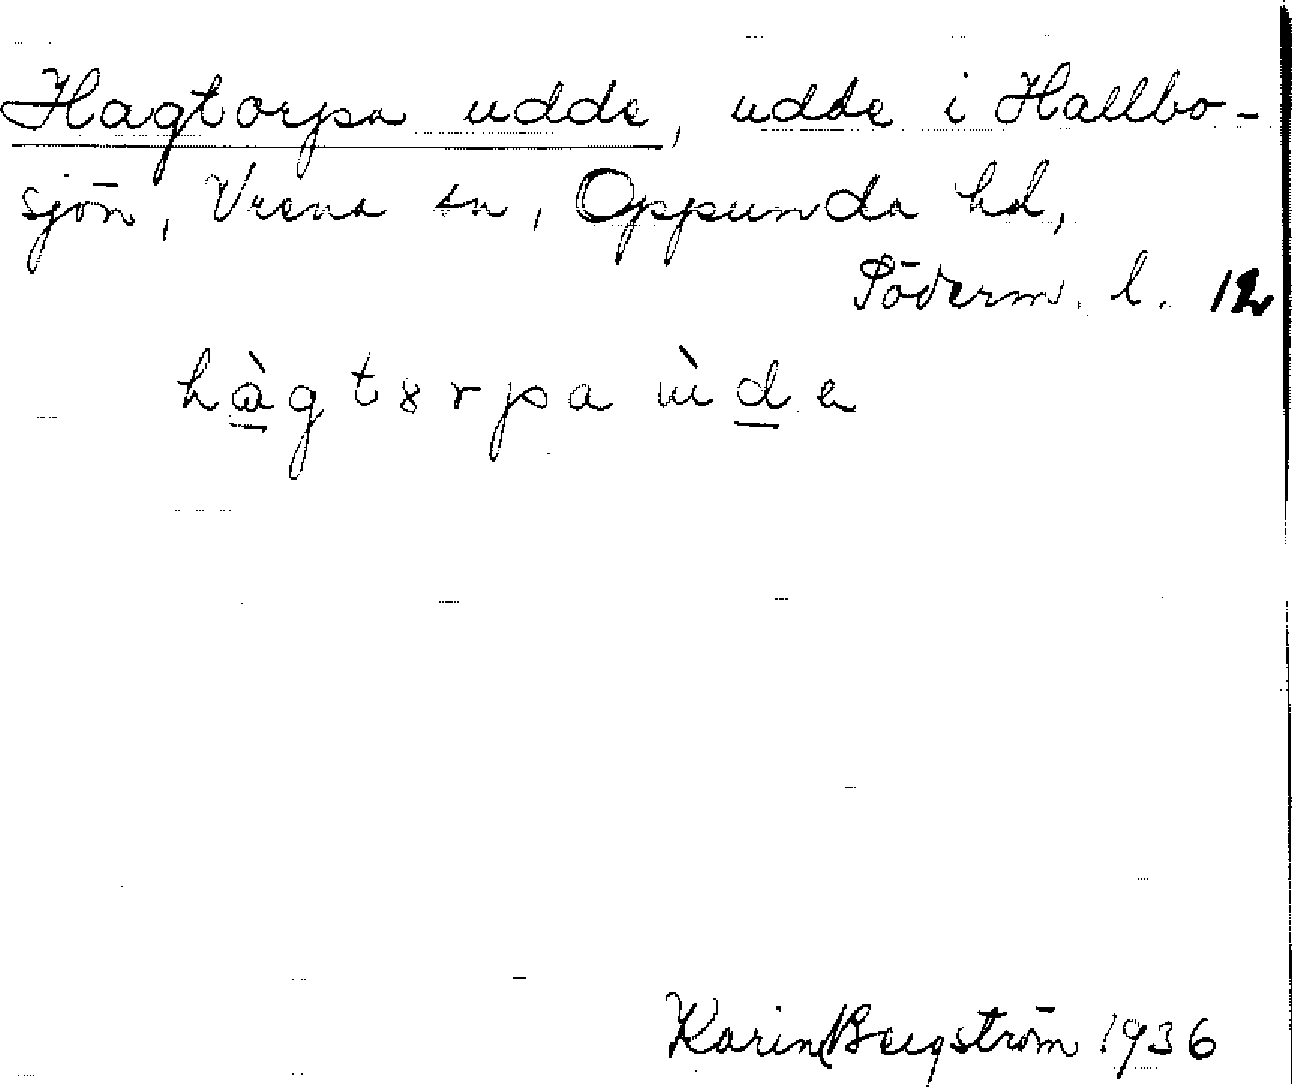 Hagtorpa udde, udde i Hallbo-
sjön, Vrena sn, Oppunda hd,
Söderm. l. 12
hàgt8rpa ùde
Karin Bergström 1936